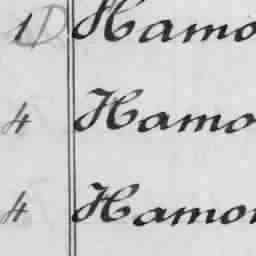 1D Hamo
4 Hamo
4 Hamon